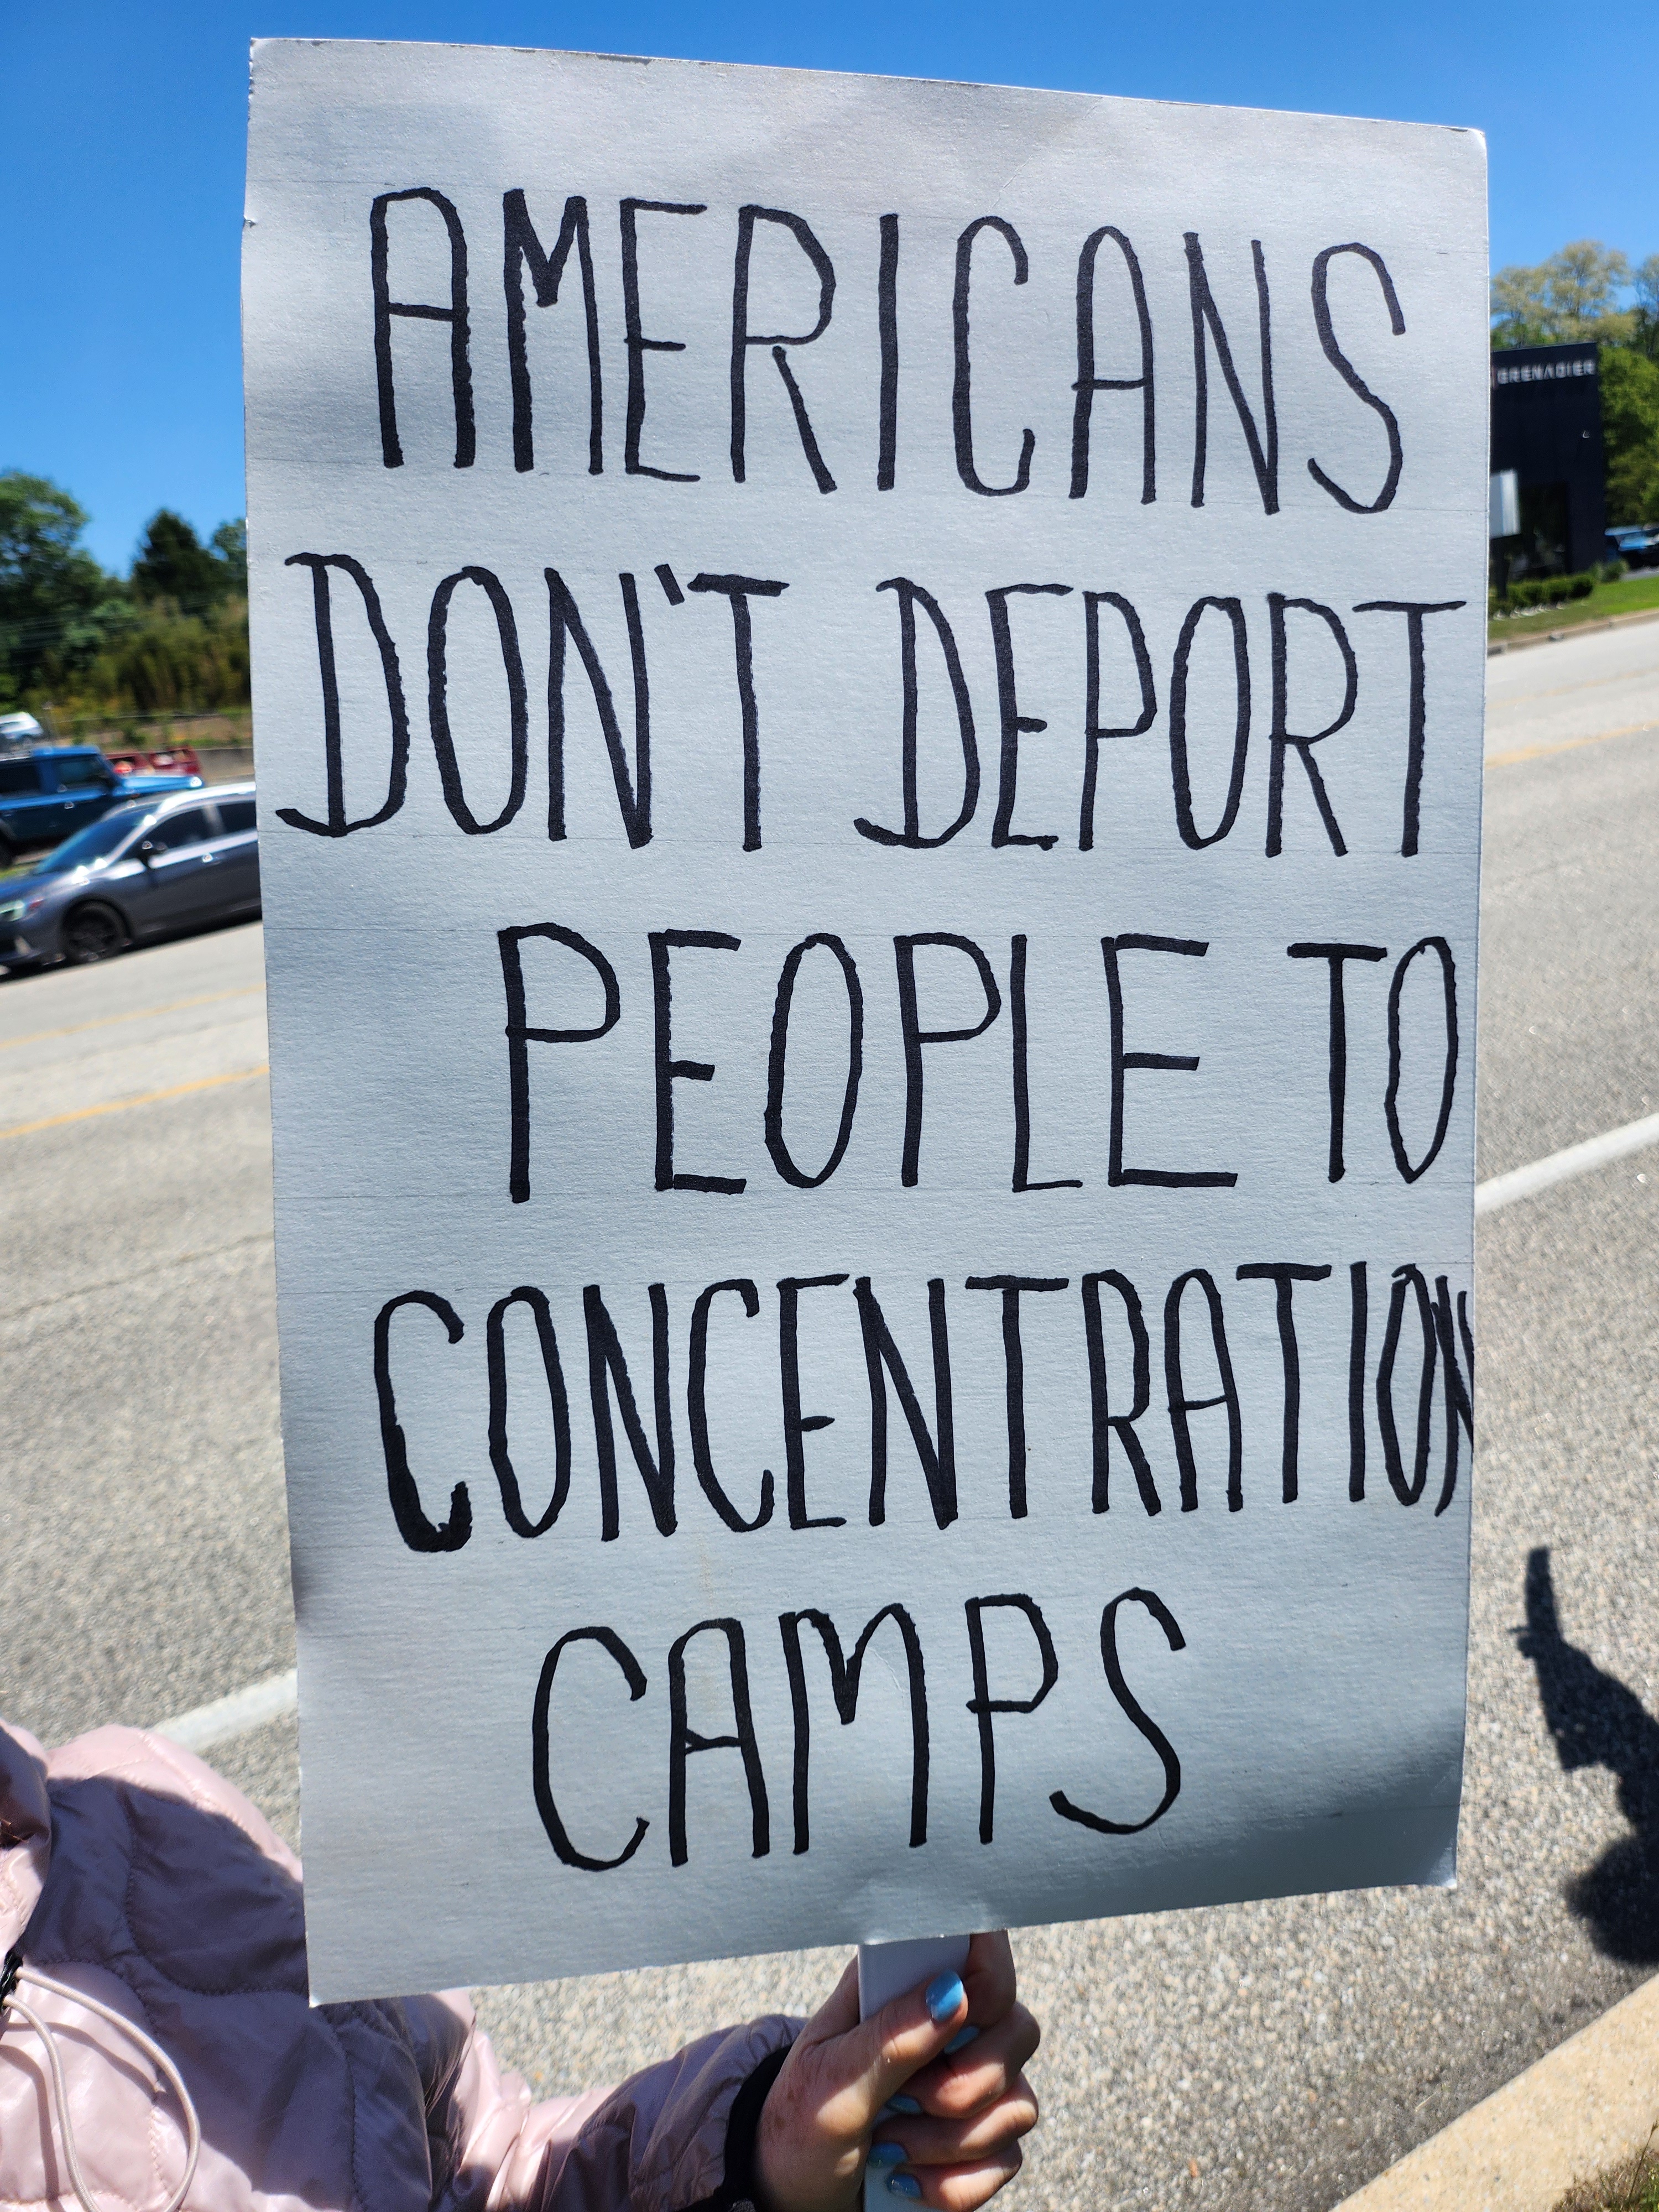 AMERICANS
DON'T DEPORT
PEOPLE TO
CONCENTRATION
CAMPS
GRENADIER